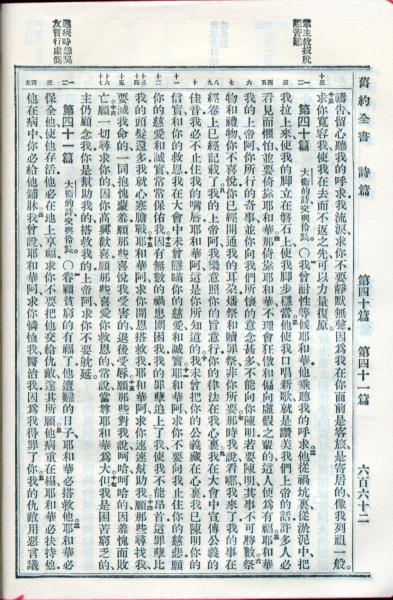 舊約全書 詩篇 第四十篇 第四十一篇 六百六十二
十三
禱告留心聽我的呼求我流淚求你不要靜默無聲因爲我在你面前是客旅是寄居的像我列祖一般
求你寬容我使我在去而不返之先可以力量復原
蒙主救拔脫
離苦難
第四十篇 大衛的詩交與伶長 〇我曾耐性等候耶和華他垂聽我的呼求他從禍坑裏從淤泥中把
我拉上來使我的脚立在磐石上使我脚步穩當他使我口唱新歌就是讚美我們上帝的話許多人必
看見而懼怕並要倚靠耶和華那倚靠耶和華不理會狂傲和偏向虛假之輩的這人便爲有福耶和華
我的上帝阿你所行的奇事並你向我們所懷的意念甚多不能向你陳明若要陳明其事不可勝數祭
物和禮物你不喜悅你已經開通我的耳朶燔祭和贖罪祭非你所要那時我說看哪我來了我的事在
經卷上已經記載了我的上帝阿我樂意照你的旨意行你的律法在我心裏我在大會中宣傳公義的
佳音我必不止住我的嘴唇耶和華阿這是你所知道的我未曾把你的公義藏在心裏我已陳明你的
信實和你的救恩我在大會中未曾隱瞞你的慈愛和誠實耶和華阿求你不要向我止住你的慈悲願
你的慈愛和誠實常常保佑我因有無數的禍患圍困我我的罪孽追上了我使我不能昂首這罪孽比
我的頭髮還多我就心寒膽戰耶和華阿求你開恩搭救我耶和華阿求你速速幫助我願那些尋找我
要滅我命的一同抱愧蒙羞願那些喜悅我受害的退後受辱願那些對我說呵哈呵哈的因羞愧而敗
亡願一切尋求你的因你高興歡喜願那些喜愛你救恩的常說當尊耶和華爲大但我是困苦窮乏的
主仍顧念我你是幫助我的搭救我的上帝阿求你不要躭延
第四十一篇 大衛的詩交與伶長 〇眷顧貧窮的有福了他遭難的日子耶和華必搭救他耶和華必
保全他使他存活他必在地上享福求你不要把他交給仇敵遂其所願他病重在榻耶和華必扶持他
他在病中你必給他鋪牀我曾說耶和華阿求你憐恤我醫治我因爲我得罪了你我的仇敵用惡言議